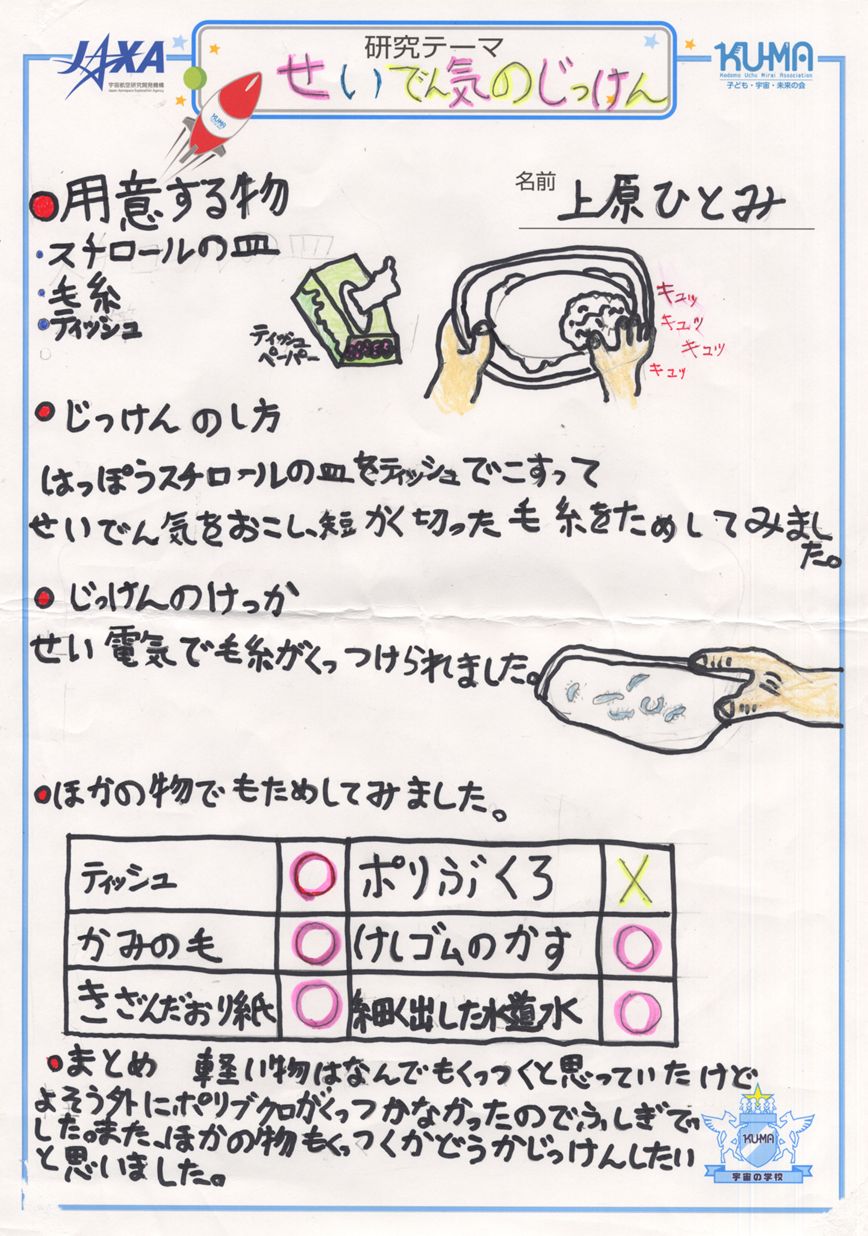 JAXA
宇宙航空研究開発機構
Japan Aerospace Exploration Agency
研究テーマ
せいでん気のじっけん
KU-MA
Kodomo Uchu Mirai Association
子ども・宇宙・未来の会
KU-MA
名前 上原ひとみ
●用意する物
・スチロールの皿
・毛糸
・ティッシュ
ティッシュ
ペーパー
キュッ
キュッ
キュッ
キュッ
●じっけんのし方
はっぽうスチロールの皿をティッシュでこすって
せいでん気をおこし、短かく切った毛糸をためしてみまし
た。
●じっけんのけっか
せい電気で毛糸がくっつけられました。
●ほかの物でもためしてみました。
ティッシュ ○ ポリぶくろ ×
かみの毛 ○ けしゴムのかす ○
きざんだおり紙 ○ 細く出した水道水 ○
●まとめ 軽い物はなんでもくっつくと思っていたけど
よそう外にポリブクロがくっつかなかったので、ふしぎで
した。また、ほかの物もくっつくかどうかじっけんしたい
と思いました。
KU-MA
宇宙の学校